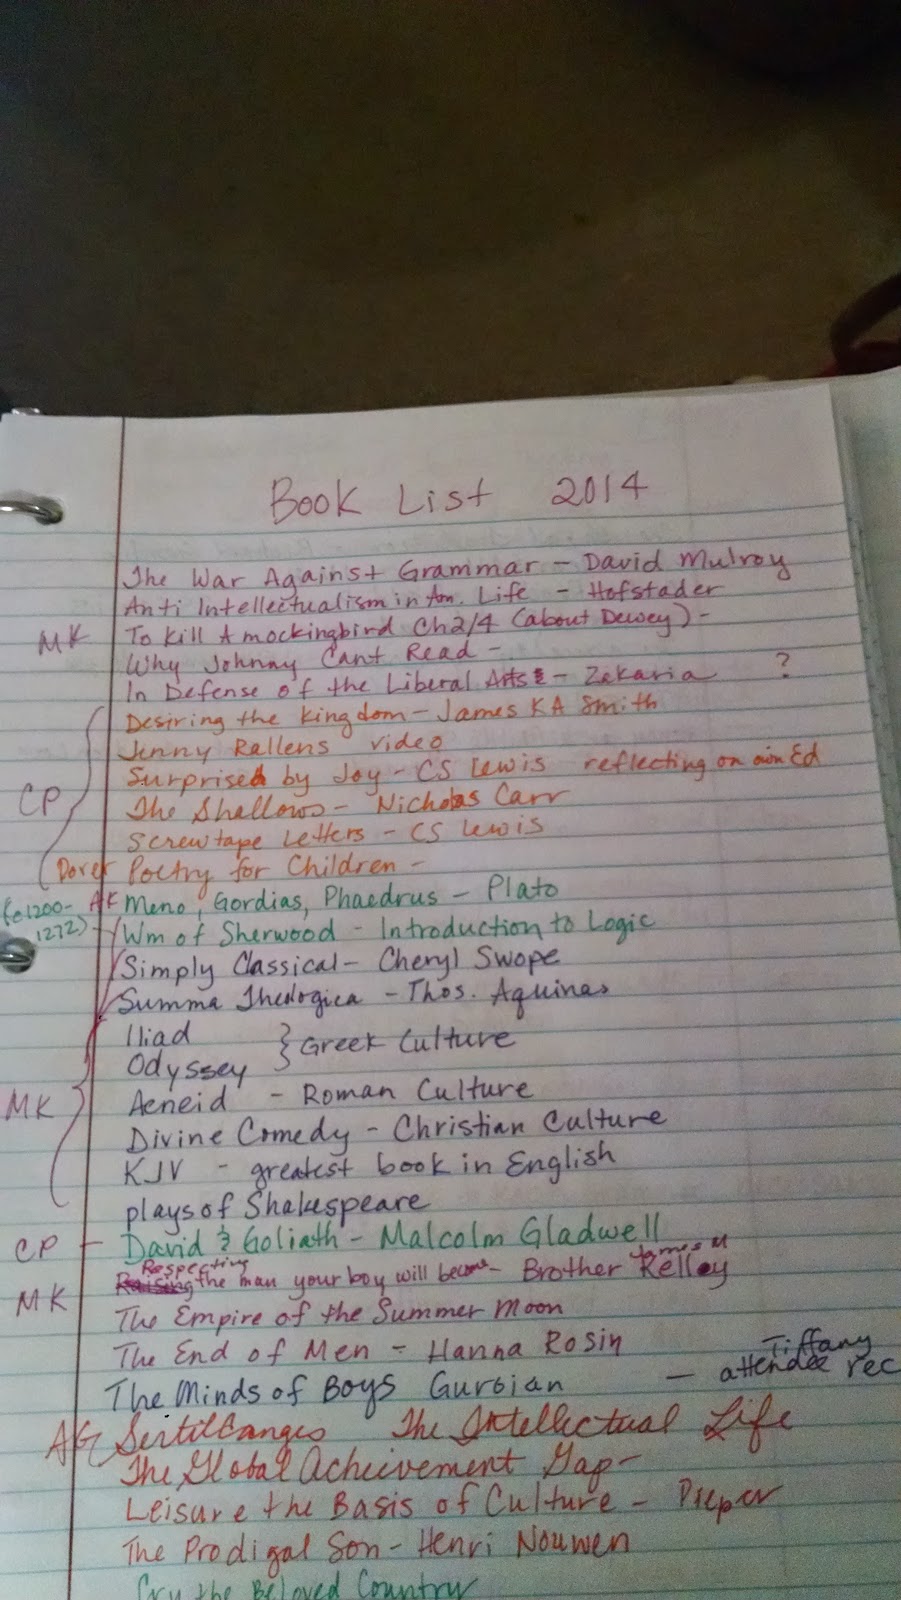 Book List 2014
The War Against Grammar - David Mulroy
Anti Intellectualism in Am. Life - Hofstader
MK To Kill A mockingbird Ch2/4 (about Dewey) -
Why Johnny Cant Read -
In Defense of the Liberal Arts - Zakaria ?
Desiring the kingdom - James KA Smith
Jenny Rallens video
Surprised by Joy - CS Lewis reflecting on own Ed
CP The Shallows - Nicholas Carr
Screwtape Letters - CS Lewis
Dover Poetry for Children -
AK Meno, Gordias, Phaedrus - Plato
(c1200-1272) - Wm of Sherwood - Introduction to Logic
Simply Classical - Cheryl Swope
Summa Theologica - Thos. Aquinas
Iliad
Odyssey } Greek Culture
MK Aeneid - Roman Culture
Divine Comedy - Christian Culture
KJV - greatest book in English
plays of Shakespeare
CP - David & Goliath - Malcolm Gladwell
Raising Respecting the man your boy will become - Brother James M Kelley
MK The Empire of the Summer Moon
The End of Men - Hanna Rosin
The Minds of Boys Gurbian - Tiffany attendee rec
AG Sertillanges The Intellectual Life
The Global Achievement Gap -
Leisure the Basis of Culture - Pieper
The Prodigal Son - Henri Nouwen
Cry the Beloved Country